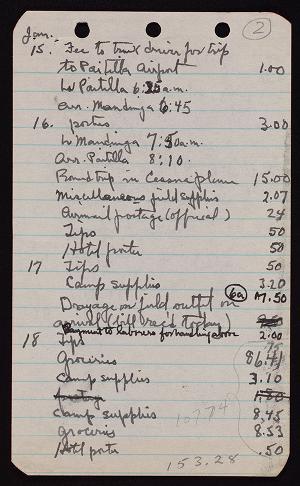 2
Jan.
15. Fee to truck driver for trip
to Paitilla Airport 1.00
Lv Paitilla 6: a.m.
Arr. Mandinga 6:45
16. porters 3.00
Lv Mandinga 7:50 a.m.
Arr. Paitilla 8:10.
Round trip in Cessna plane 15.00
Miscellaneous field supplies 2.07
Airmail postage (official) 24
Tips 50
Hotel porter 50
17 Tips 50
Camp supplies 3.20
Drayage on field outfit on 6a 17.50
arrival (bill rec'd today)
Payment to laborers for handling above 2.00
18 Tips .75
Groceries 86.41
Camp supplies 3.10
postage 1.80
Camp supplies 8.45
groceries 8.53
Hotel porter .50
107 74
153.28